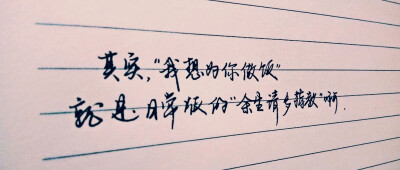 其实，"我想为你做饭"
就是日常版的"余生请多指教"啊.